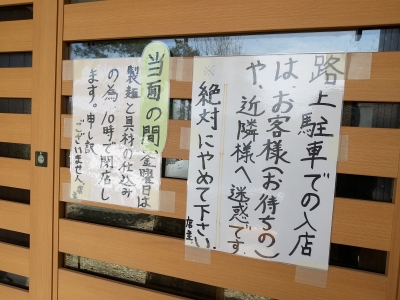 路上駐車での入店
はお客様(お待ちの)
や、近隣様へ迷惑です。
※絶対にやめて下さい。
店主
当面の間、金曜日は
製麺と具材の仕込み
の為、10時で閉店し
ます。申し訳
ございません